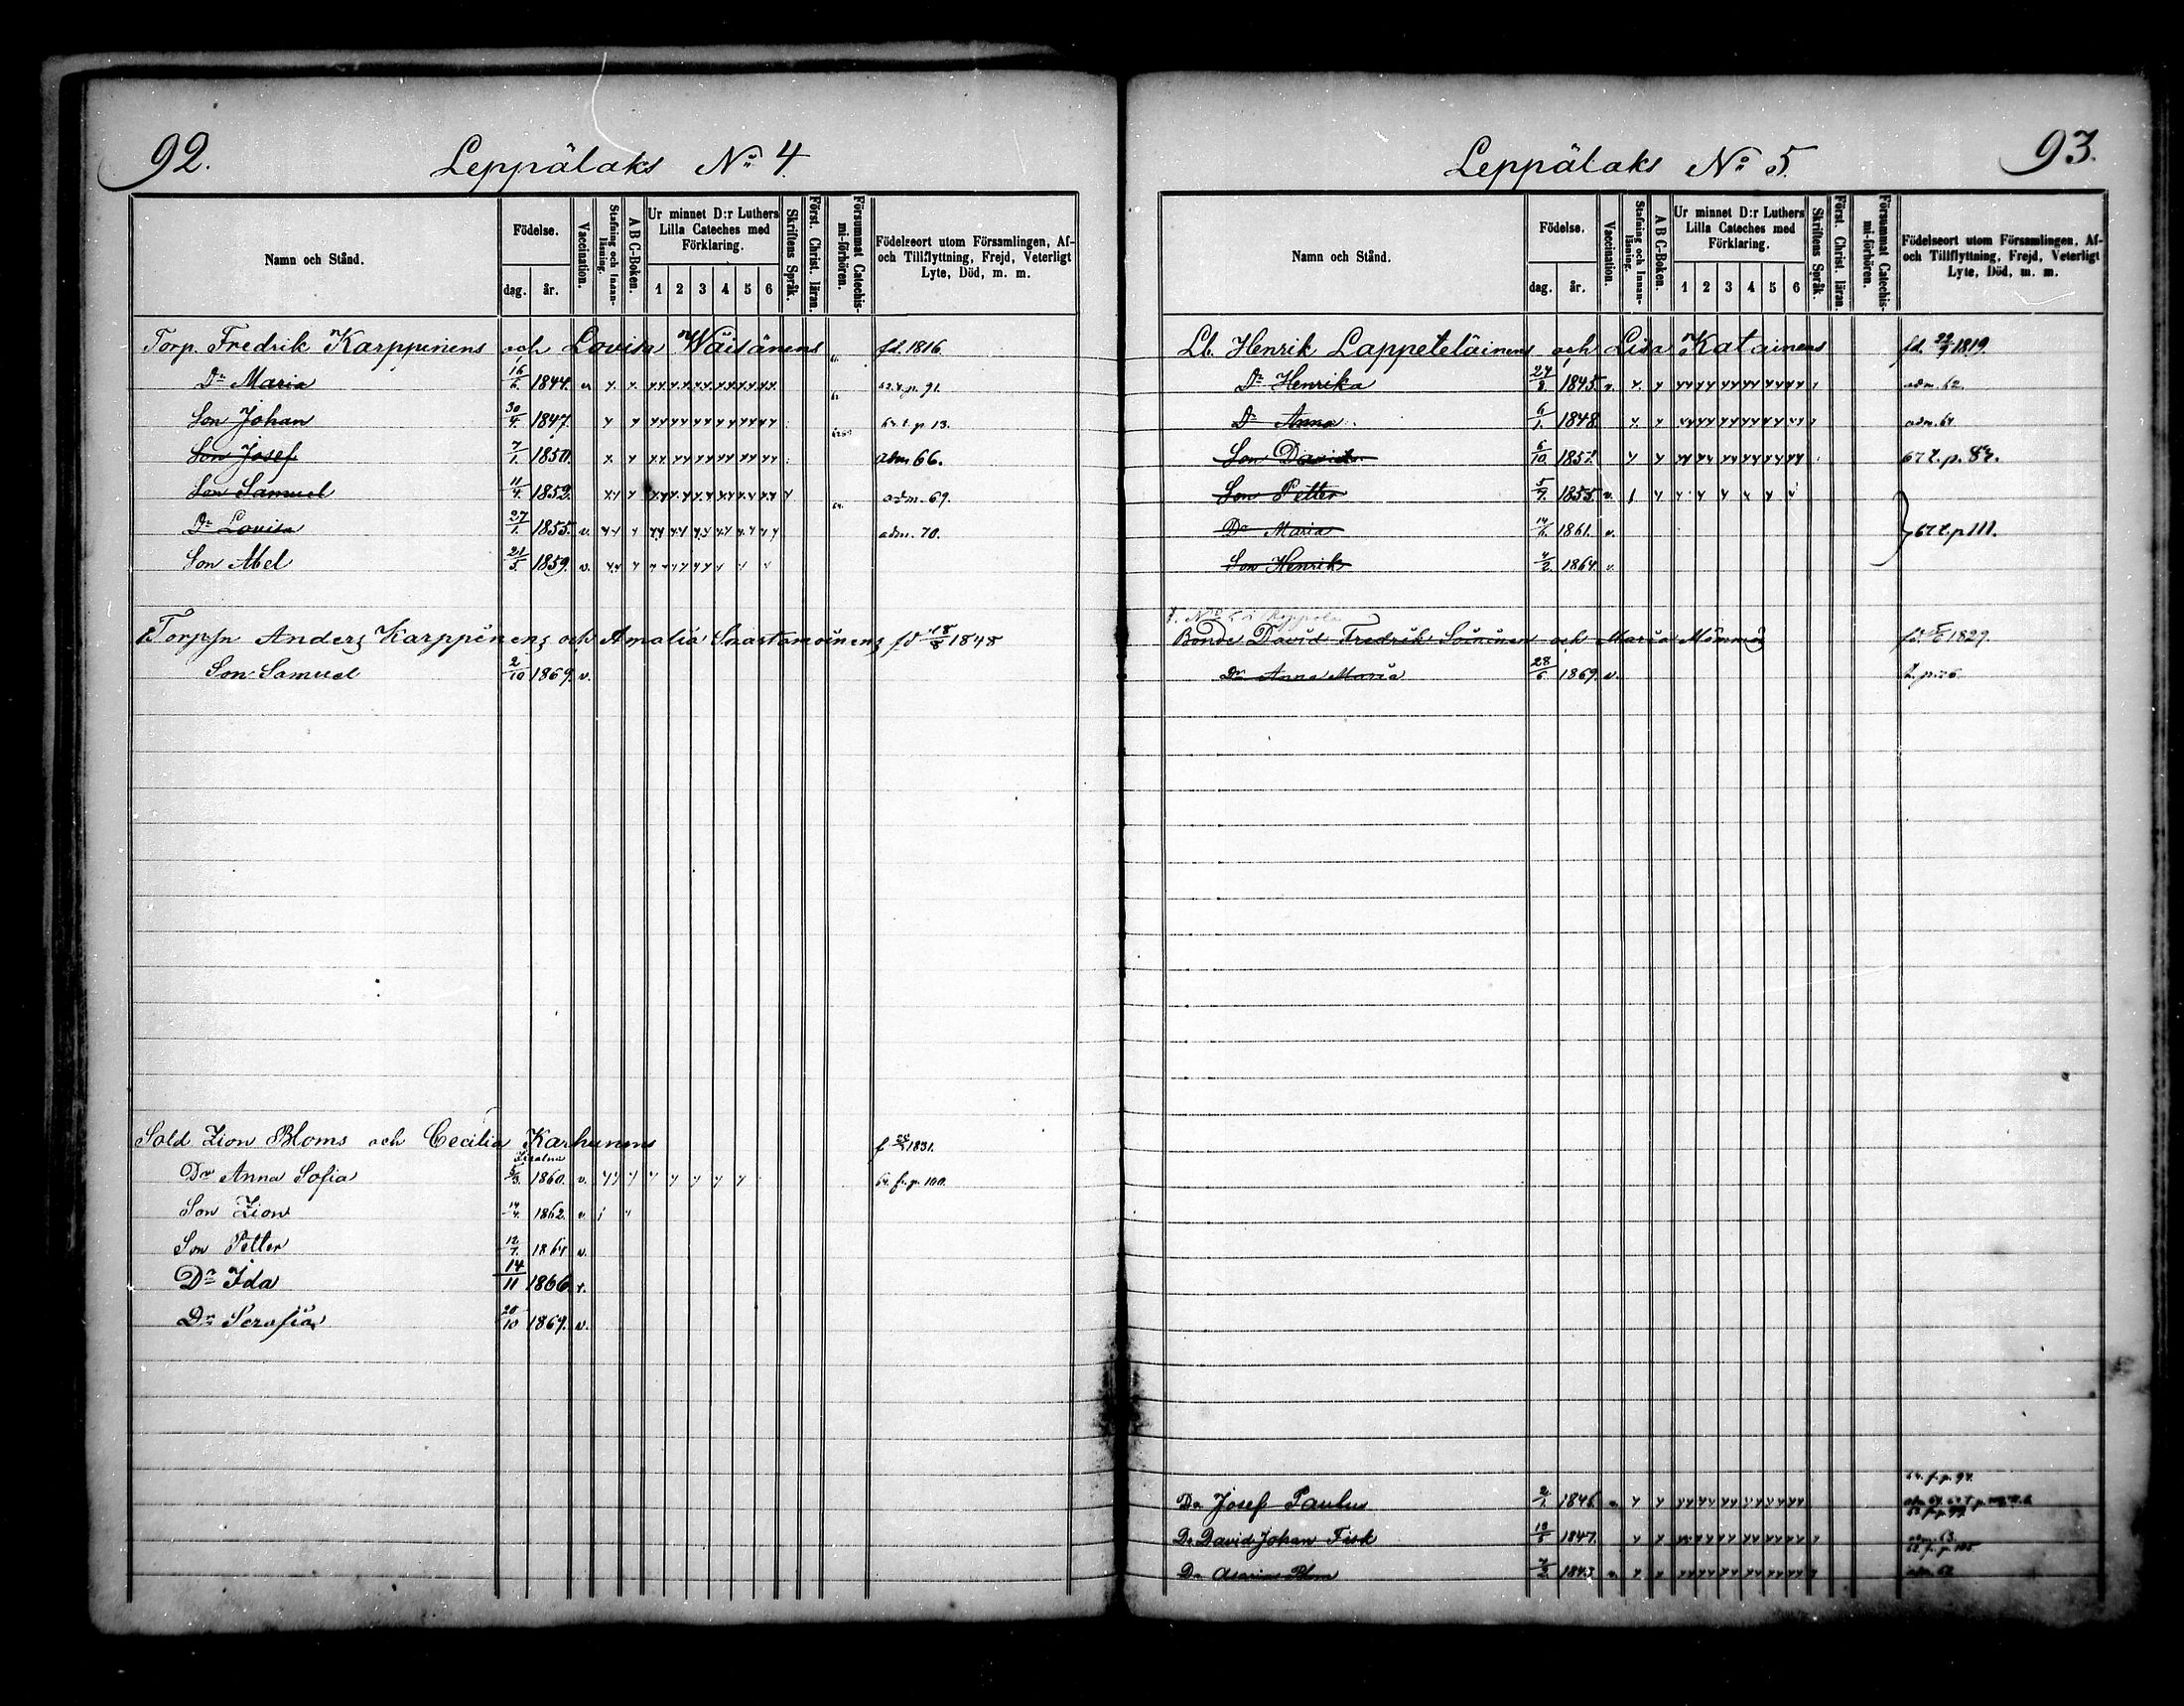 92.
Leppälaks No 4.
Namn och Stånd.
Födelse.
dag. år.
Vaccination.
Stafning och Innanläsning.
A B C-Boken.
Ur minnet D:r Luthers Lilla Cateches med Förklaring.
1 2 3 4 5 6
Skriftens Språk.
Först. Christ. läran.
Försummat Catechismi-förhören.
Födelseort utom Församlingen, Af- och Tillflyttning, Frejd, Veterligt Lyte, Död, m. m.
Torp. Fredrik Karppinens och Lovisa Wäisänens fd. 1816.
Dr Maria 16/6. 1844. p. 91.
Son Johan 30/4. 1847. p. 13.
Son Josef 7/1. 1850. adm 66.
Son Samuel 11/4. 1852. adm. 69.
Dr Lovisa 27/1. 1855. v. adm. 70.
Son Abel 21/5. 1859. v.
Torpsn Anders Karppinens och Amalia Snastamoinens fd 18/8 1848
Son Samuel 2/10 1869. v.
Sold. Zion Bloms och Cecilia Karhunens 1831.
Dr Anna Sofia 5/3. 1860. v. 64. fr. p. 100.
Son Zion 14/4. 1862. v
Son Petter 12/7. 1864 v.
Dr Ida 14/11 1866 v.
Dr Serafia 20/10 1869. v.
93.
Leppälaks No 5.
Namn och Stånd.
Födelse.
dag. år.
Vaccination.
Stafning och Innanläsning.
A B C-Boken.
Ur minnet D:r Luthers Lilla Cateches med Förklaring.
1 2 3 4 5 6
Skriftens Språk.
Först. Christ. läran.
Försummat Catechismi-förhören.
Födelseort utom Församlingen, Af- och Tillflyttning, Frejd, Veterligt Lyte, Död, m. m.
Lb. Henrik Lappeteläinens och Lisa Katainens fd. 22/9 1819.
Dr Henrika 24/8 1845. v. adm. 62.
Dr Anna 6/1. 1848 adm. 64
Son David 6/10 1851. 67 t. p. 82.
Son Petter 5/7. 1855. v.
Dr Maria 14/6. 1861. v. 67 t. p 111.
Son Henrik 4/2. 1864 v.
Bonde David Fredrik Soininen och Maria Mömmö 1829.
Dr Anna Maria 28/6 1869. v.
64. f. p. 94.
Dr Josef Paulus 2/1. 1846.
Dr David Johan Fisk 19/5 1847. adm. 63.
Dr 7/2. 1843. adm. 62